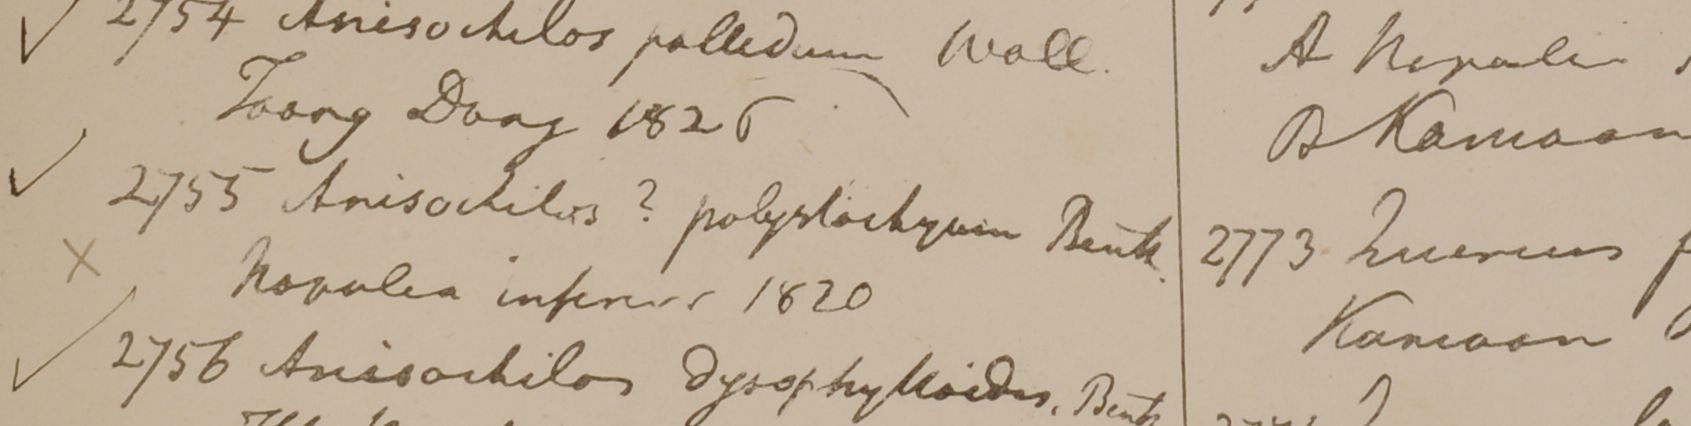 2754 Anisochilos pallidum Wall.
Toong Dong 1826
2755 Anisochilos ? polystachyum Benth.
Napalea inferior 1820
2756 Anisochilos dysophylloides, Benth
A Nepalia
B Kamaon
2773 Quercus
Kamaon